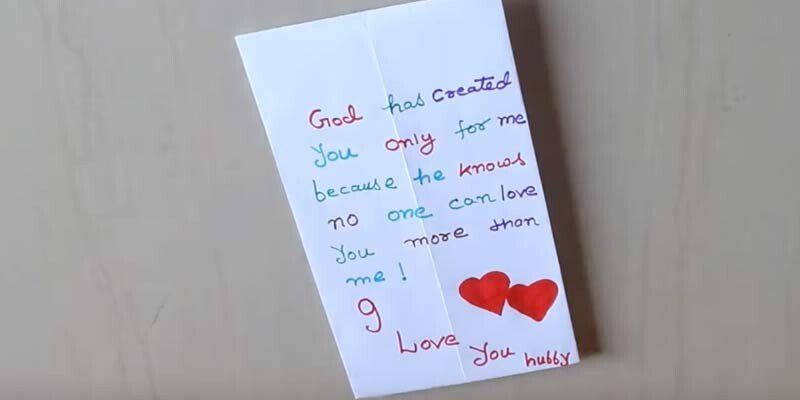 God has Created
You only for me
because he knows
no one can love
You more than
me!
I
Love You hubby